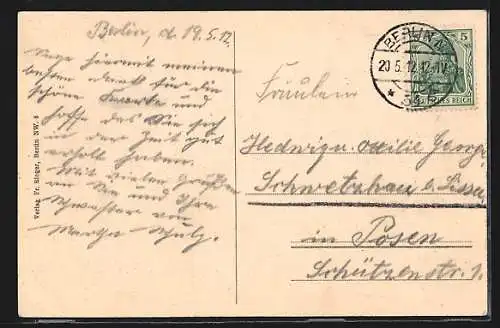 Berlin, d. 19.5.12.
Sage hiermit meinen
besten Dank für die
schöne Karte und
hoffe das Sie sich
in der Zeit gut
erholt haben.
Mit vielen Grüßen
an Sie und Ihre
Schwester von
Margr. Schulz.
Verlag Fr. Singer, Berlin NW. 6
BERLIN
20.5.12.12-1V.
5
REICH
Fräulein
Hedwig u. Georgi
Schwetzkau b. Lissa
in Posen
Schützenstr. 1.